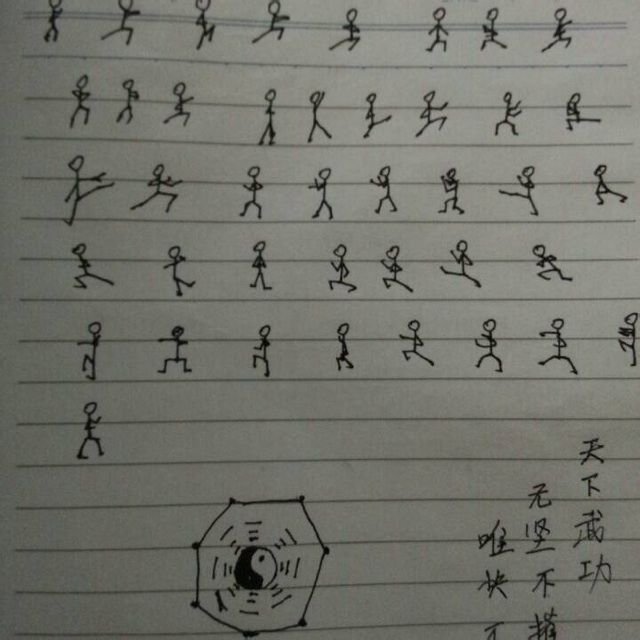 天下武功
无坚不摧
唯快不